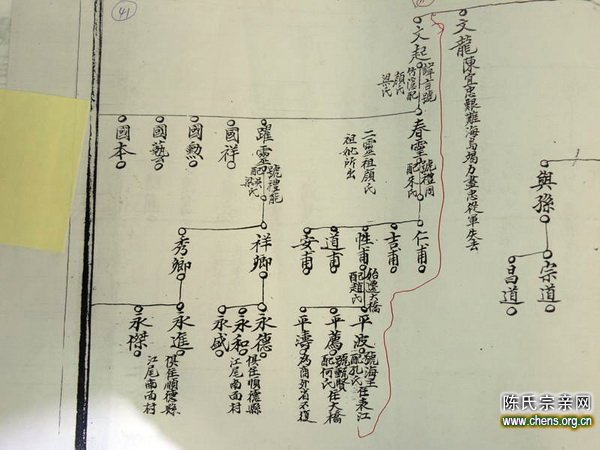 41
文龍
陳宜忠艱難海島竭力盡忠從軍失去
文起
諱言號
竹濱配
顏氏
梁氏
春靈
號禮周
配朱氏
二靈祖顏氏
祖妣所出
躍靈
號禮能
梁氏
國祥
國勲
國藝
國本
仁甫
吉甫
性甫
始遷大橋
配趙氏
道甫
安甫
祥卿
秀卿
平波
號海主
任東江
配孔氏
平篤
任大橋
配何氏
平濤
為商外省不復
永德
俱住順德縣
江尾南面村
永和
永盛
永進
俱住順德縣
江尾南面村
永傑
與孫
宗道
昌道
陈氏宗亲网
www.chens.org.cn